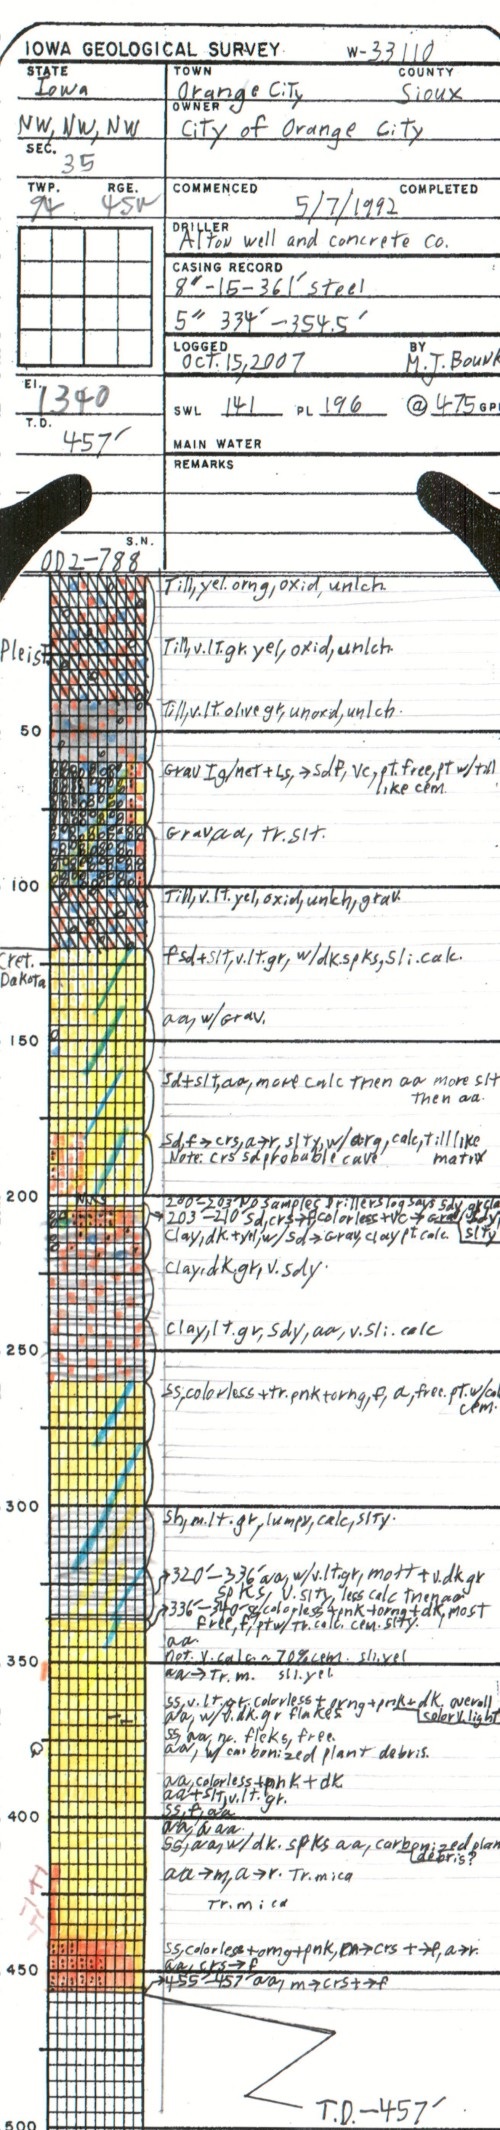 IOWA GEOLOGICAL SURVEY W-33110
STATE Iowa
TOWN Orange City
COUNTY Sioux
NW, NW, NW
OWNER City of Orange City
SEC. 35
TWP. RGE. 45W
COMMENCED COMPLETED
5/7/1992
DRILLER Alton well and concrete Co.
CASING RECORD
8"-15-361' steel
5" 334'-354.5'
LOGGED Oct. 15, 2007
BY M.J. Bounk
El. 1340
SWL 141 PL 196 @ 475 GP
T.D. 457'
MAIN WATER
REMARKS
S.N.
OD2-788
Till, yel. orng, oxid, unlch.
Pleist
Till, v.lt.gr yel, oxid, unlch.
Till, v.lt. olive gr, unoxd, unlch.
50
Grav Ig/met + Ls, → sdf, vc, pt. free, pt w/till
like cem.
Grav, aa, tr. slt.
100
Till, v.lt. yel, oxid, unlch, grav.
Cret.
Dakota
fsd+slt, v.lt.gr, w/dk.spks, sli. calc.
aa, w/Grav.
150
Sd+slt, aa, more calc then aa more slt
then aa.
Sd, f→crs, a→r, slty, w/arg, calc, till like
Note: crs sd probable cave matrix
200
200'-203' No samples Drillers log says sdy gr cla
203'-210' Sd, crs→f, colorless + vc →
slty
Clay, dk + yel, w/ sd→Grav, clay pt calc
Clay, dk.gr, v. sdy.
Clay, lt.gr, sdy, aa, v.sli. calc
250
SS, colorless + tr. pnk + orng, f, a, free. pt. w/cal
cem.
300
Sh, m.lt.gr, lumpy, calc, slty.
320'-336' aa, w/v.lt.gr, mott + v.dk gr
spks, v. slty, less calc then aa
336'-340' ss, colorless + pnk + orng + dk, most
free, f, pt w/tr. calc. cem. slty.
aa.
not. v. calc. ~70% cem. sli. yel
350
aa→Tr. m. sli. yel.
SS, v.lt.gr. colorless + orng + pnk + dk. overall
color v. light
aa, w/v.dk.gr flakes
SS, aa, no. fleks, free.
aa, w/carbonized plant debris.
aa, colorless + pnk + dk
aa + slt, v.lt.gr.
SS, f, aa
400
aa, a aa.
SS, aa, w/dk. spks aa, carbonized plan
debris?
aa→m, a→r. Tr. mica
Tr. mica
SS, colorless + orng + pnk, m→crs + →f, a→r.
aa, crs→f
450
455'-457' aa, m→crs + →f
T.D.-457'
500